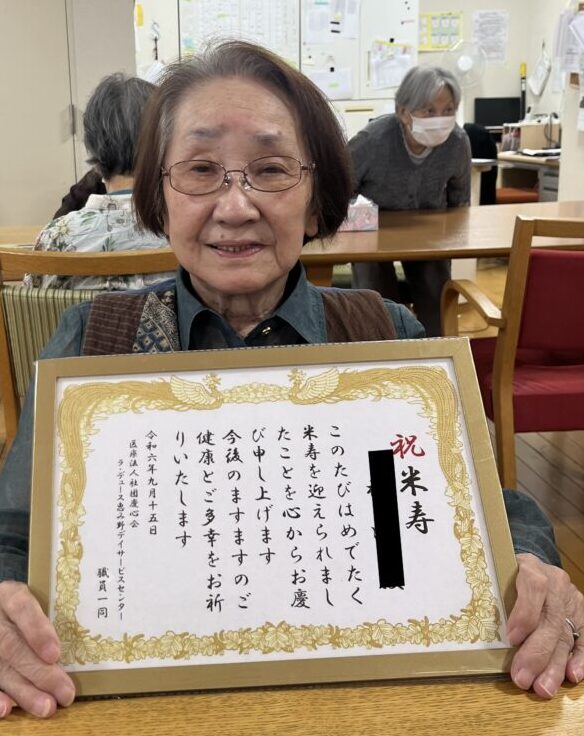 祝 米寿
様
このたびはめでたく
米寿を迎えられまし
たことを心からお慶
び申し上げます
今後のますますのご
健康とご多幸をお祈
りいたします
令和六年九月十五日
医療法人社団慶心会
ラ・デュース恵み野デイサービスセンター
職員一同